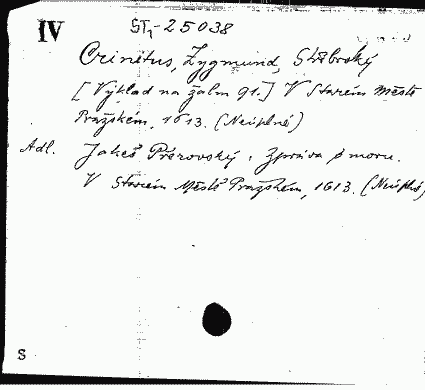 IV ST1-25038
Crinitus, Zygmund, Stříbrský
[Výklad na žalm 91.] V Starém Městě
Pražském, 1613. (Neúplné)
Adl. Jakeš Přerovský: Zpráva o moru.
V Starém Městě Pražském, 1613. (Neúplné)
S